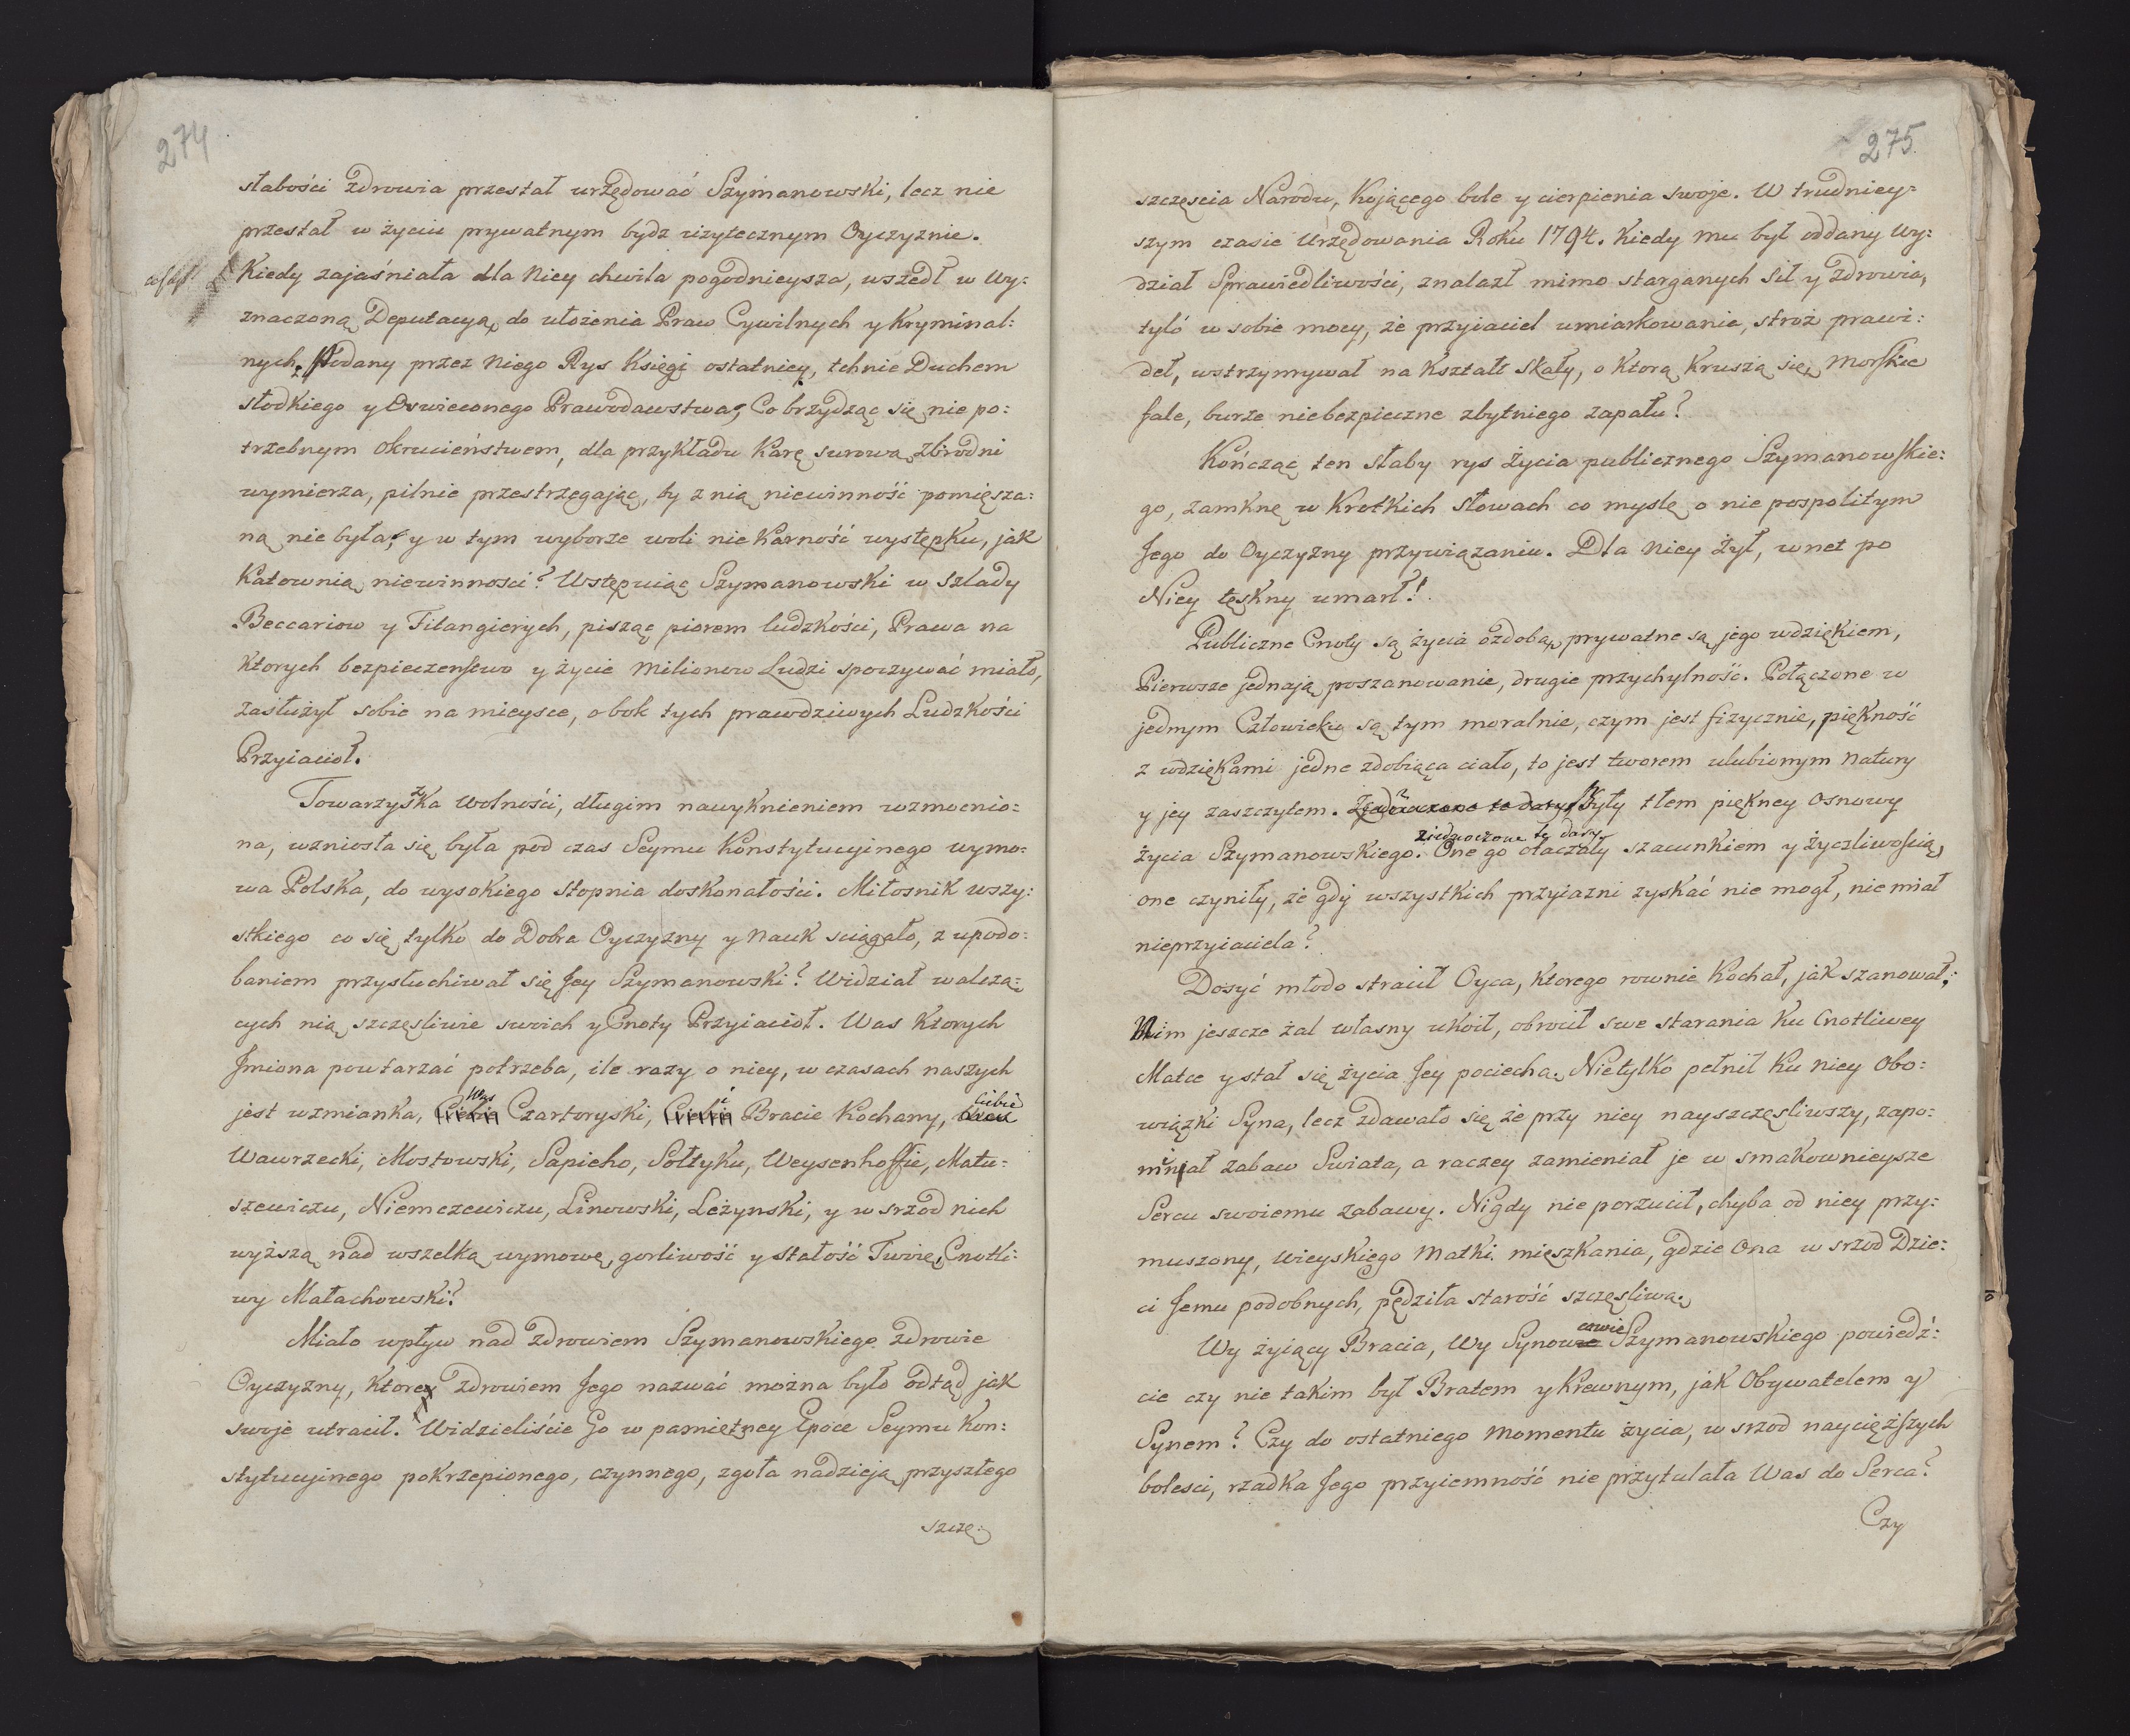 274
słabości zdrowia przestał urzędować Szymanowski, lecz nie
przestał w życiu prywatnym bydz użytecznym Oyczyznie.
Kiedy zajaśniała dla Niey chwila pogodnieysza, wszedł w wy:
znaczoną Deputacyą, do ułożenia Praw Cywilnych y Kryminal:
nych. Podany przez Niego Rys Księgi ostatniey, tchnie Duchem
słodkiego y Oswieconego Prawodawstwa, Co brzydząc się nie po:
trzebnym okrucieństwem, dla przykładu Karę surową zbrodni
wymierza, pilnie przestrzegając, by z nią niewinność pomięsza:
ną nie była, y w tym wyborze woli nie Karność występku, jak
Katownią niewinnosci? Wstępuiąc Szymanowski w szlady
Beccariow y Filangierych, pisząc piorem ludzkości, Prawa na
ktorych bezpieczenstwo y życie Milionow Ludzi spoczywać miało,
zasłużył sobie na mieysce, obok tych prawdziwych Ludzkości
Przyiacioł.
Towarzyszka Wolności, długim nawyknieniem wzmocnio:
na, wzniosła się była pod czas Seymu Konstytucyinego wymo:
wa Polska, do wysokiego stopnia doskonałości. Miłosnik wszy:
stkiego co się tylko do Dobra Oyczyzny y Nauk sciągało, z upodo:
baniem przysłuchiwał się Jey Szymanowski? Widział walczą:
cych nią szczęsliwie swoich y Cnoty Przyiacioł. Was Ktorych
Jmiona powtarzać potrzeba, ile razy o niey, w czasach naszych
Was i Ciebie
jest wzmianka, Ciebie Czartoryski, Ciebie Bracie Kochany,
Wawrzecki, Mostowski, Sapieho, Sołtyku, Weysenhoffie, Matu:
szewiczu, Niemczewiczu, Linowski, Leżynski, y w srzod nich
wyższą nad wszelką wymowę, gorliwość y stałość Twoię, Cnotli:
wy Małachowski?
Miało wpływ nad zdrowiem Szymanowskiego zdrowie
Oyczyzny, Ktore zdrowiem Jego nazwać można było odtąd jak
swoje utracił. Widzieliście Go w pamiętney Epoce Seymu Kon:
stytucyinego pokrzepionego, czynnego, zgoła nadzieją przyszłego
szczę:
275
szczęscia Narodu, Kojącego bole y cierpienia swoje. W trudniey:
szym czasie Urzędowania Roku 1794. Kiedy mu był oddany Wy:
dział Sprawiedliwości, znalazł mimo starganych sił y zdrowia,
tylo w sobie mocy, że przyiaciel umiarkowania, stroż prawi:
deł, wstrzymywał na Kształt skały, o Ktorą Kruszą się, Morskie
fale, burze niebezpieczne zbytniego zapału?
Kończąc ten słaby rys życia publicznego Szymanowskie:
go, zamknę w Krotkich słowach co myslę o nie pospolitym
Jego do Oyczyzny przywiązaniu. Dla Niey Żył, wnet po
Niey tęskny umarł!
Publiczne Cnoty są życia ozdobą, prywatne są jego wdziękiem,
Pierwsze jednają poszanowanie, drugie przychylność. Połączone w
jednym Człowieku są tym moralnie, czym jest fizycznie, piękność
z wdziękami jedne zdobiąca ciało, to jest tworem ulubionym Natury
y jey zaszczytem. Zjednoczone te dary Były tłem piękney osnowy
zjednoczone te dary
życia Szymanowskiego. One go otaczały szacunkiem y życzliwością,
one czyniły, że gdy wszystkich przyiazni zyskać nie mogł, nie miał
nieprzyiaciela?
Dosyć młodo stracił Oyca, ktorego rownie Kochał, jak szanował;
Nim jeszcze żal własny ukoił, obrocił swe starania Ku Cnotliwey
Matce y stał się życia Jey pociechą. Nietylko pełnił Ku niey Obo:
wiązki Syna, lecz zdawało się że przy niey nayszczęsliwszy, zapo:
minał zabaw Swiata, a raczey zamieniał je w smakownieysze
Sercu swoiemu zabawy. Nigdy nie porzucił, chyba od niey przy:
muszony, wieyskiego Matki mięszkania, gdzie Ona w srzod Dzie:
ci Jemu podobnych, pędziła starość szczęsliwą.
cowie
Wy żyiący Bracia, Wy Synowie Szymanowskiego powiedź:
cie czy nie takim był Bratem y Krewnym, jak Obywatelem y
Synem? Czy do ostatniego Momentu życia, w srzod naycięższych
bolesci, rzadka Jego przyiemność nie przytulała Was do Serca?
Czy